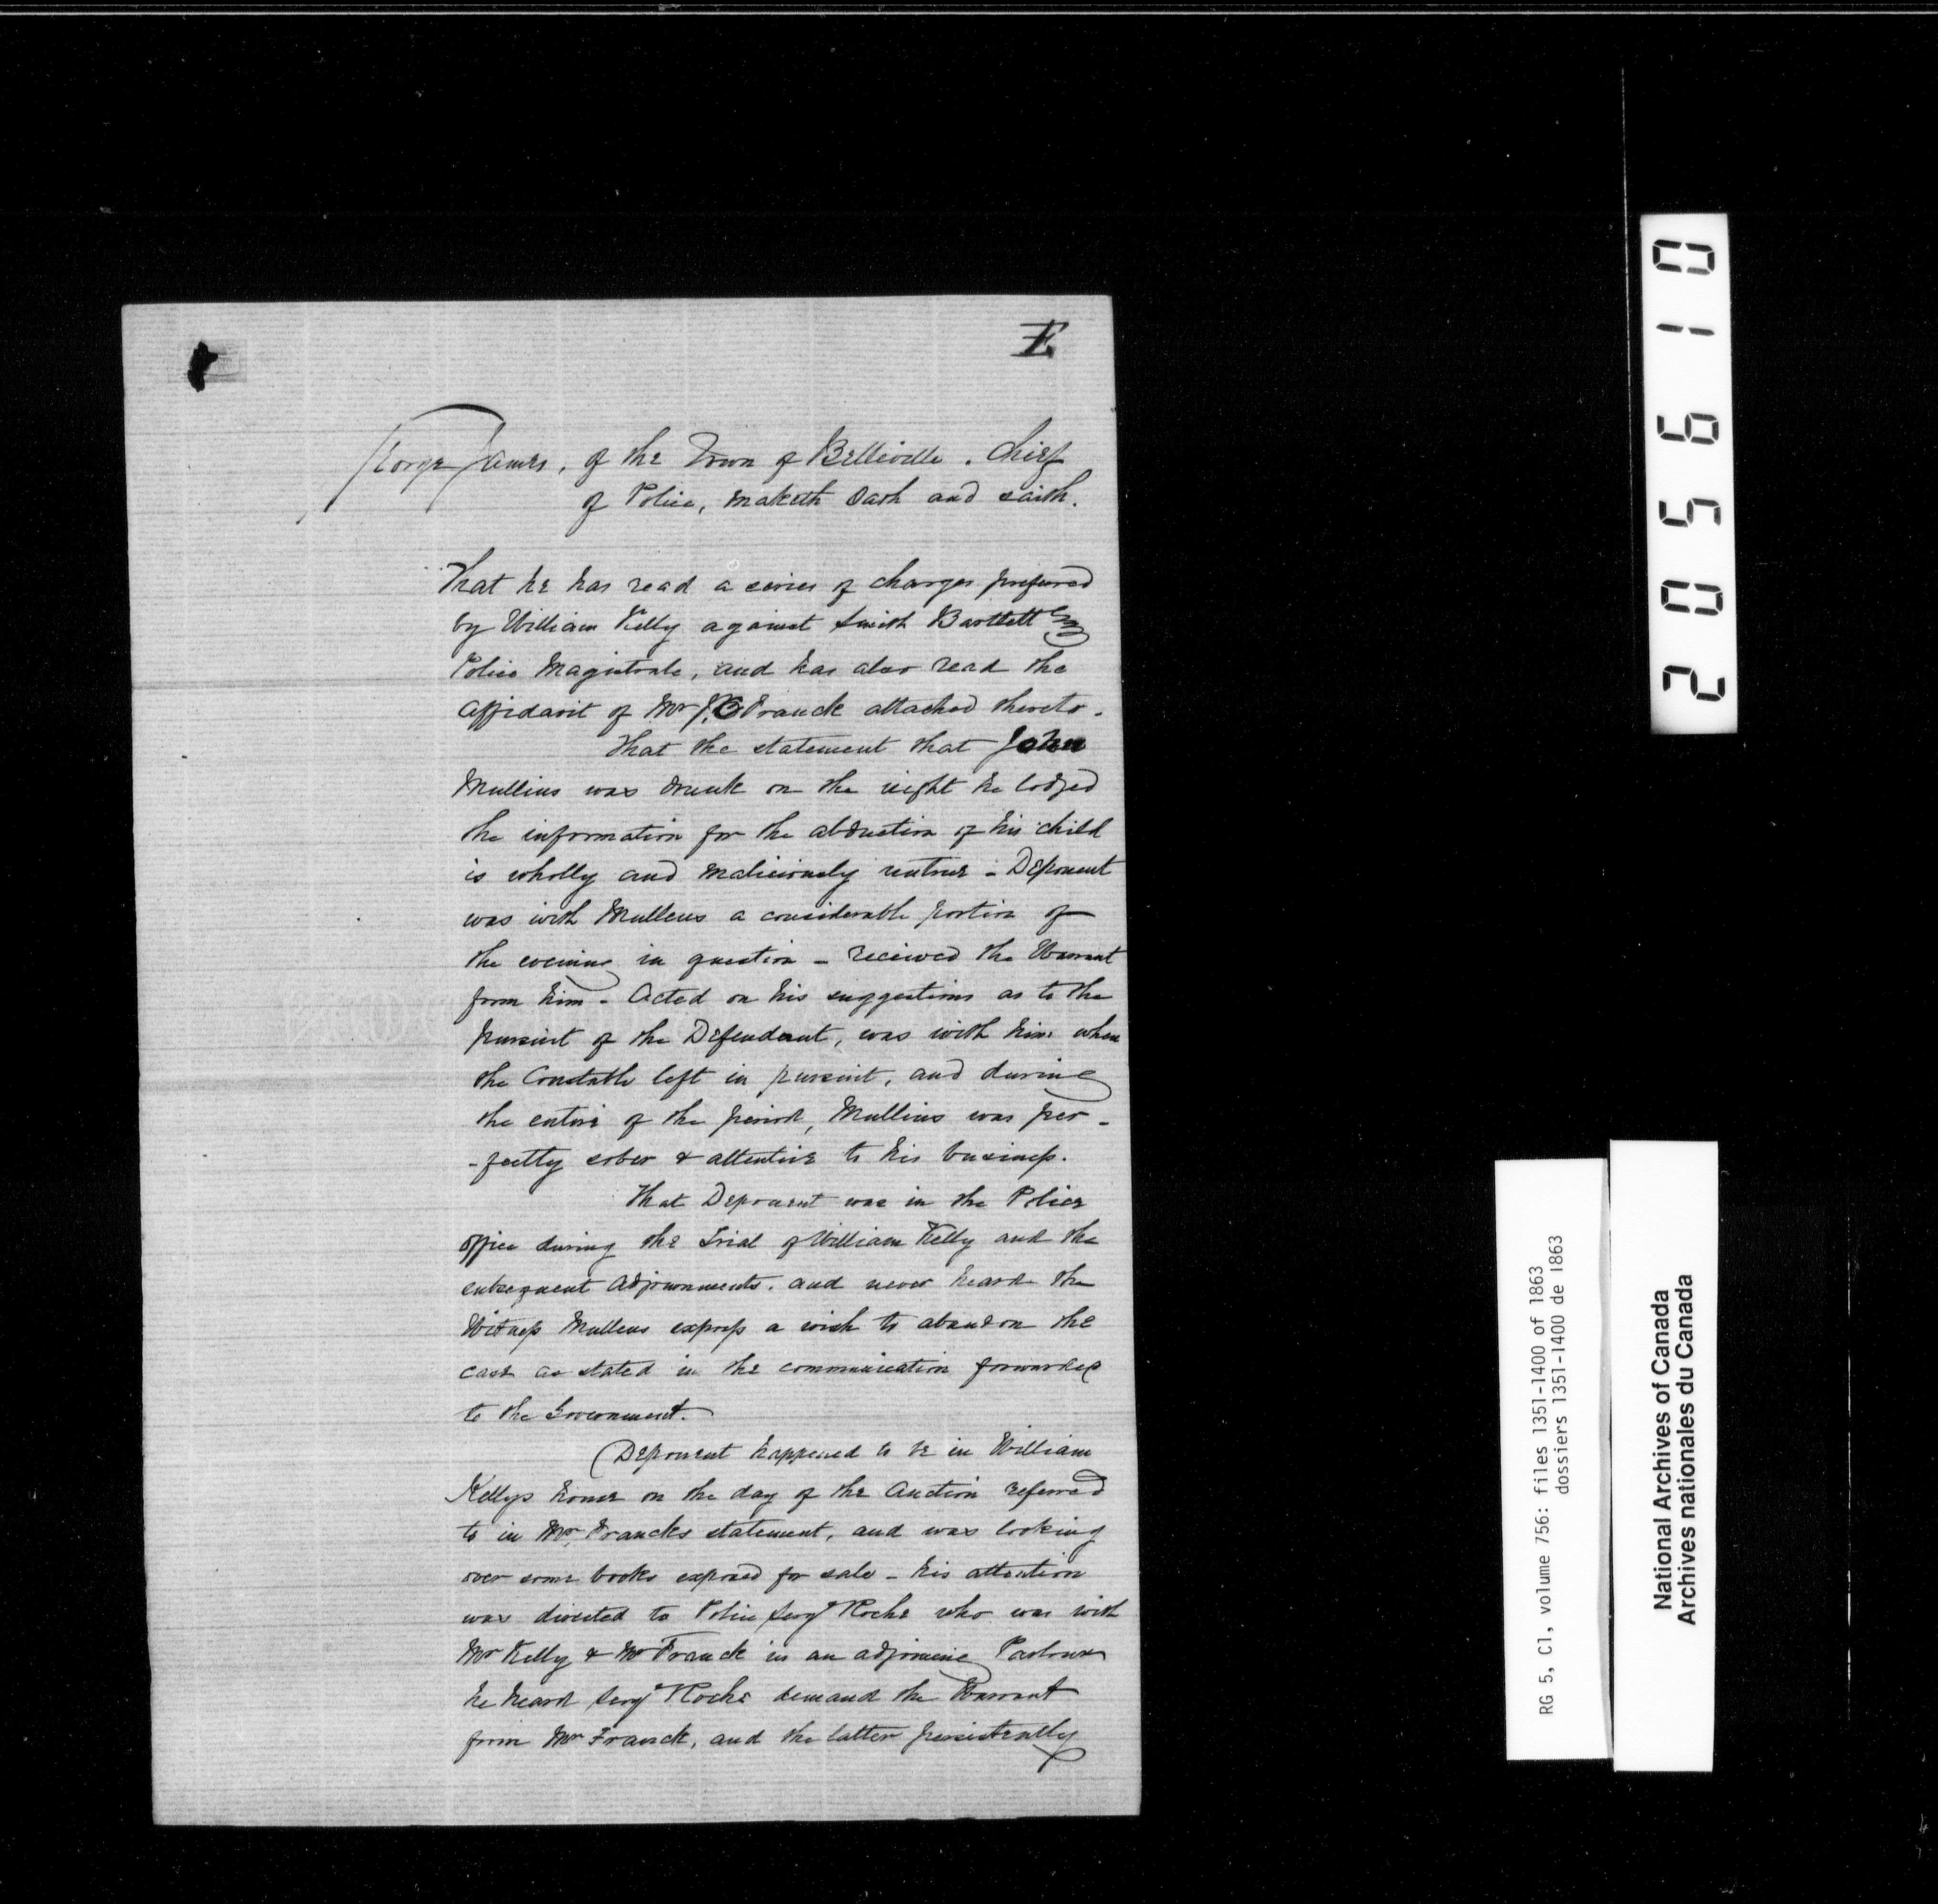 E
George James, of the Town of Belleville. Chief
of Police, maketh Oath and saith.
That he has read a series of charges preferred
by William Kelly against Smith Bartlett Esq
Police Magistrate, and has also read the
affidavit of Mr J. C Franck attached thereto.
That the statement that John
Mullins was drunk on the night he lodged
the information for the abduction of his child
is wholly and maliciously untrue - Deponent
was with Mullens a considerable portion of
the evening in question - received the Warrant
from him - Acted on his suggestions as to the
pursuit of the Defendant, was with him when
the Constable left in pursuit, and during
the entire of the period, Mullins was per-
-fectly sober & attentive to his business.
That Deponent was in the Police
office during the Trial of William Kelly and the
subsequent adjournments. and never heard the
Witness Mullens express a wish to abandon the
case as stated in the communication forwarded
to the Government.
Deponent happened to be in William
Kellys house on the day of the Auction referred
to in Mr. Francks statement, and was looking
over some books exposed for sale - his attention
was directed to Police Sergt Roche who was with
Mr Kelly & Mr Franck in an adjoining Parlour
he heard Sergt Roche demand the Warrant
from Mr Franck, and the latter persistently
205610
RG 5, C1, volume 756: files 1351-1400 of 1863
dossiers 1351-1400 de 1863
National Archives of Canada
Archives nationales du Canada